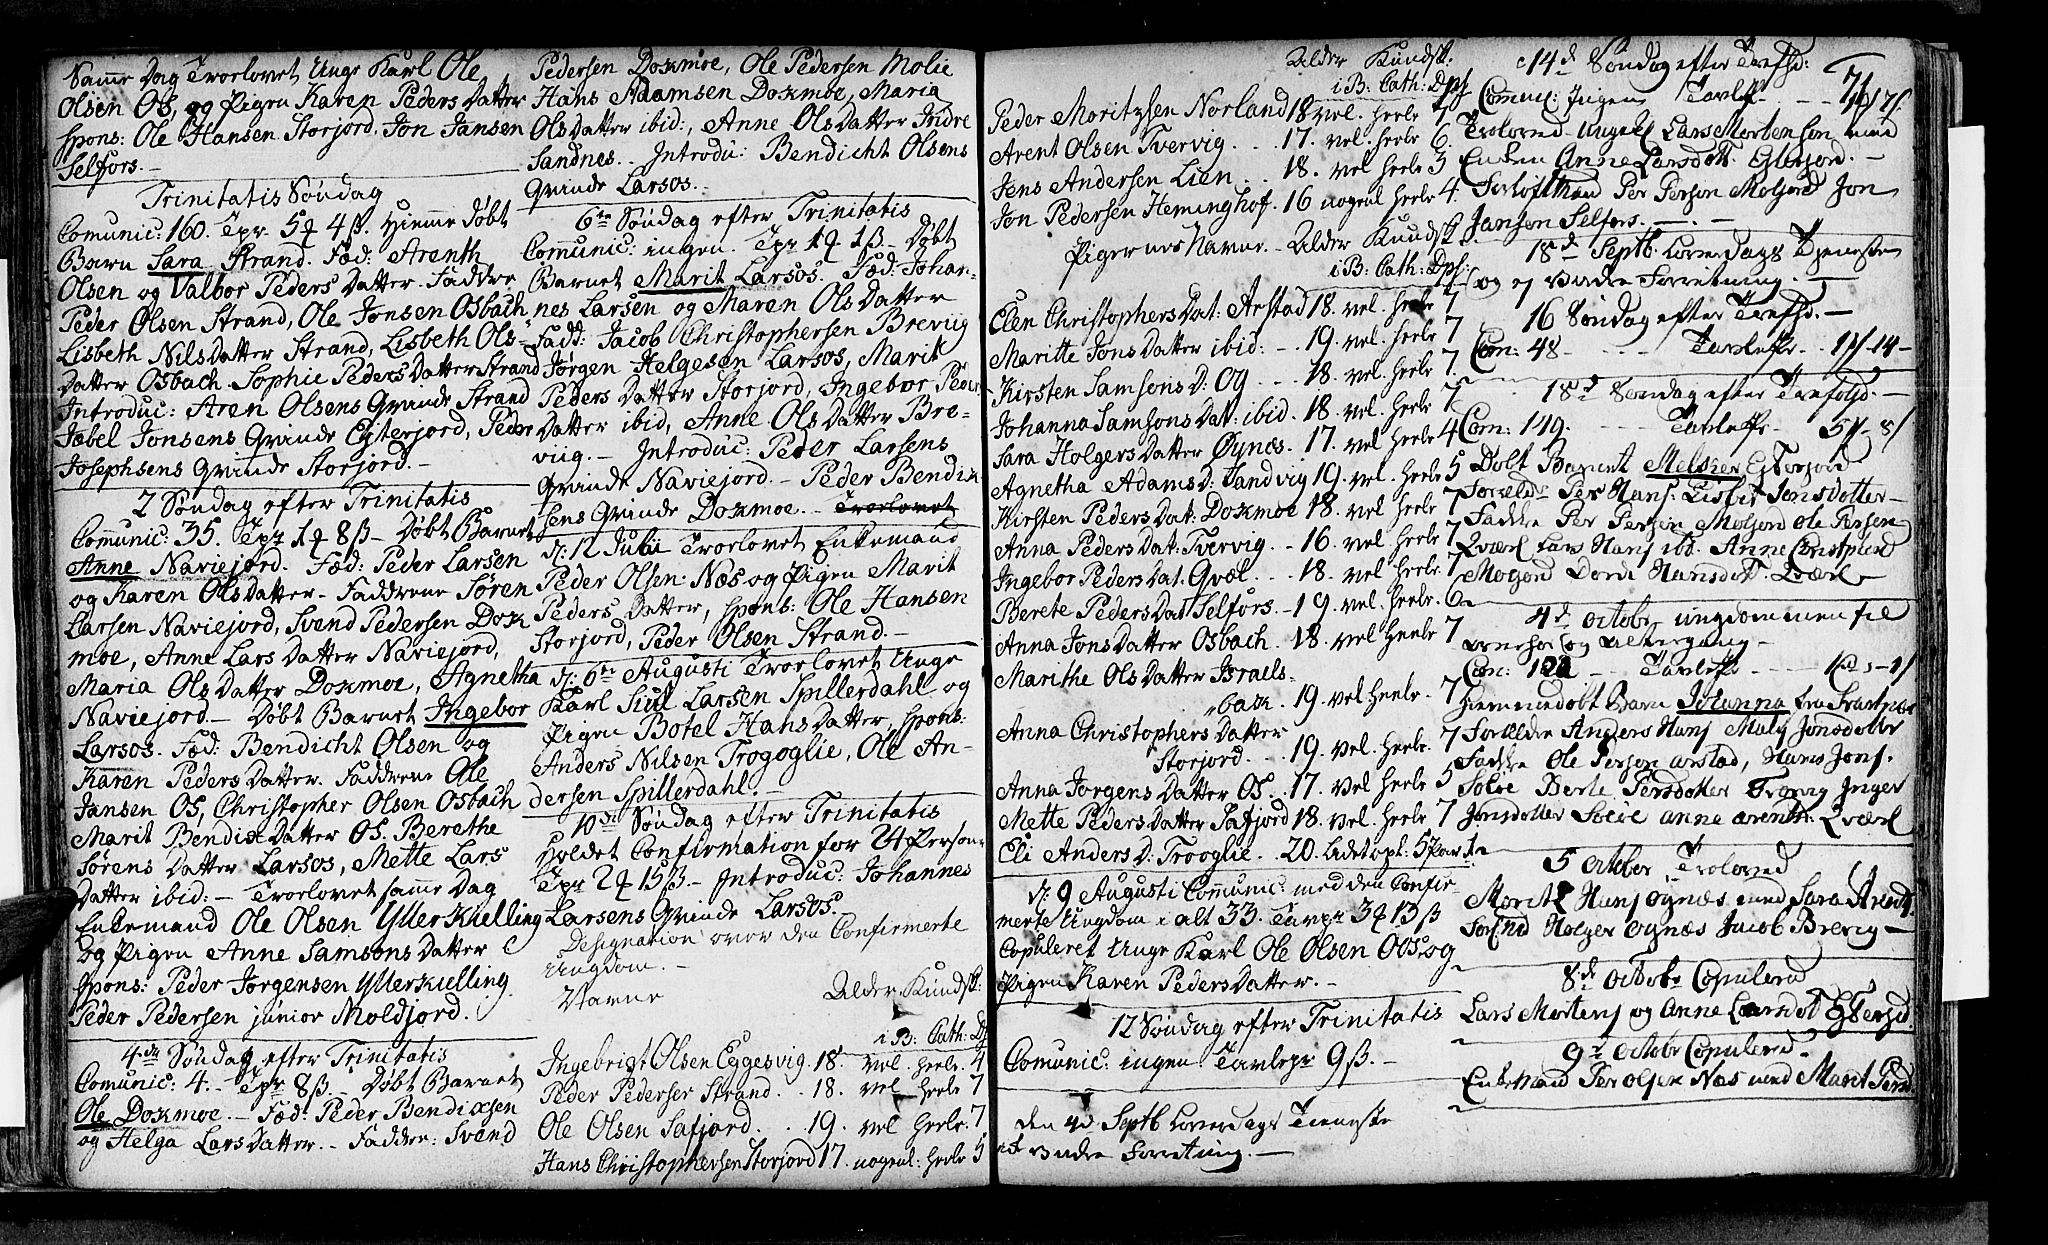 Samme Dag Trorlovet Unge Karl Ole
Olsen Os, og Pigen Karen PedersDatter
spons: Ole Hansen Storjord, Jon Jansen
Selfors.
Trinitatis Søndag
Comunic: 160. Tpr. 5 4 ß. Hieme Døbt
Barn Sara Strand. Fød: Arenth
Olsen og Valbor PedersDatter. Faddre
Peder Olsen Strand, Ole Jonsen Osbach
Lisbeth NilsDatter Strand, Lisbeth Ols-
Datter Osbach. Sophie PedersDatter Strand
Introduc: Aren Olsens Qvinde Strand
Jabel Jonsens Qvinde Egterjord, Peder
Josephsens Qvinde Storjord.
2 Søndag efter Trinitatis
Comunic: 35. Tpr 1 8 ß - Døbt Barnet
Anne Naviejord. Fød: Peder Larsen
og Karen OlsDatter - Faddrene Søren
Larsen Naviejord, Svend Pedersen Dox
moe, Anne LarsDatter Naviejord,
Maria OlsDatter Doxmoe, Agnetha
Naviejord - Døbt Barnet Ingebor
Larsos. Fød: Bendicht Olsen og
Karen PedersDatter. Faddrene Ole
Jansen Os, Christopher Olsen Osbach
Marit BendixDatter Os. Berethe
SørensDatter Larsos, Mette Lars
Datter ibid: - Trorlovet samme Dag
Enkemand Ole Olsen Ytterkielling
og Pigen Anne SamsonsDatter
spons: Peder Jørgensen Ytterkielling
Peder Pedersen junior Moldjord.
4de Søndag efter Trinitatis
Comunic: 4. - Tpr 8 ß - Døbt Barnet
Ole Doxmoe. - Fød: Peder Bendixsen
og Helga LarsDatter. - Faddre: Svend
Pedersen Doxmoe, Ole Pedersen Molie
Hans Adamsen Doxmoe, Maria
OlsDatter ibid:, Anne OlsDatter Indre
Sandnes. - Introdu: Bendicht Olsens
Qvinde Larsos.
6te Søndag efter Trinitatis
Communic: ingen. Tpr 1 1 ß - Døbt
Barnet Marit Larsos. Fød: Johan-
nes Larsen og Maren OlsDatter
Fadd: Jacob Christophersen Breviig
Jørgen Helgesen Larsos, Marit
PedersDatter Storjord, Ingebor Peder
Datter ibid, Anne OlsDatter Bre-
viig. - Introduc: Peder Larsens
Qvinde Naviejord. - Peder Bendix
sens Qvinde Doxmoe. - Trorlovet
d: 12 Julii Trorlovet Enkemand
Peder Olsen Næs og Pigen Marit
PedersDatter, spons: Ole Hansen
Storjord, Peder Olsen Strand. -
d: 6te Augusti Trorlovet Unge
Karl Siul Larsen Spillerdahl og
Pigen Botel HansDatter, spons:
Anders Nilsen Trogoglie, Ole An-
dersen Spillerdahl. -
10de Søndag efter Trinitatis
Holdet Confirmation for 24 Person:
Tpr 2 15 ß - Introduc: Johannes
Larsens Qvinde Larsos.
Designation over den Confirmerte
Ungdom. -
Navne Alder Kundsk:
i B: Cath: Dp
Ingebrigt Olsen Eggesvig. 18. vel. heele. 4
Peder Pedersen Strand. . 18. vel heele 7
Ole Olsen Safjord. . . 19. vel heele. 7
Hans Christophersen Storjord 17. nogenl: heele 5
Alder Kundsk:
i B: Cath: Dps
Peder Moritzsen Norland 18 vel. heele 7
Arent Olsen Tvervig. . . 17. vel. heele 6.
Jens Andersen Lien . . 18. vel heele 3
Jon Pedersen Heminghof. 16 nogenl heele 4.
Pigernes Navne - Alder Kundsk:
i B: Cath: Dps:
Elen ChristophersDat: Arstad 18. vel. heele 7
Maritte JonsDatter ibid: - . 19. vel. heele 7
Kirsten SamsonsD: Og . . . 18. vel. heele 7
Johanna SamsonsDat: ibid. 18. vel. heele 7
Sara HolgersDatter Øynæs. 17. vel. heele 4
Agnetha AdamsD: Sandvig 19. vel. heele 5
Kirsten PedersDat: Doxmoe 18. vel heele 7
Anna PedersDat: Tvervig. - 16. vel. heele 7
Ingebor PedersDat. Qvæl. . . 18. vel heele 7
Berete PedersDat Selfors. - 19. vel. heele. 6
Anna JonsDatter Osbach. 18. vel heele 7
Marithe OlsDatter Israels-
bak . 19. vel heele. 7
Anna ChristophersDatter
Storjord. . . 19. vel. heele. 7
Anna JørgensDatter Os. . 17. vel heele 5
Mette PedersDatter Safjord 18. vel. heele 7
Eli AndersD: Trooglie. . 20.
d: 9 Augusti Comunic: med den Confir-
merte Ungdom i alt 33. Tavpr 3 13 ß
Copuleret Unge Karl Ole Olsen Os og
Pigen Karen PedersDatter. -
12 Søndag efter Trinitatis
Comunic: ingen Tavlepr 9 ß. -
den 4d Septb Løverdags Tieneste
uden Forretning. -
71
14d Søndag efter Trefhd:
Comu: Ingen Tavlep
Troloved Ungekl Lars Mortenson med
Enken Anne Larsdott. Egterjord. -
Forløftmænd Per Person Moljord Jon
Janson Selfors. -
18d Septb Løverdags Tieneste
16 Søndag efter Trefhd. -
Com: 48 - Tavlep
18d Søndag efter Trefoldhd. -
Com: 149. Tavlep
Døbt Barnet Melker Egterjord
Forældr Per Hans: Lisbet Jonsdotter -
Faddre Per Person Moljord Ole Persen
Qværl Lars Hans ibd. Anne
Moljord Dorde Hansdot. Qværl -
4d october ungdommen til
Com: 102 Tavlep
Hiemmedøbt Barn Johanna
Forældre Anders Hans Mali Jonsdotter
Faddre Ole Person Arstad, Hans Jons.
Soløe Berte Persdotter Tverviig Inger
Jonsdotter Soløe anne Qværl
5 october Troloved
Moritz Hans øynæs med Sara
Holger øynæs Jacob Brevig -
8d octobr Copulered
Lars Mortens og Anne Larsdot Egterjord
9d octobr Copulered.
Enkemand Per olsen Næs med Marit Persd